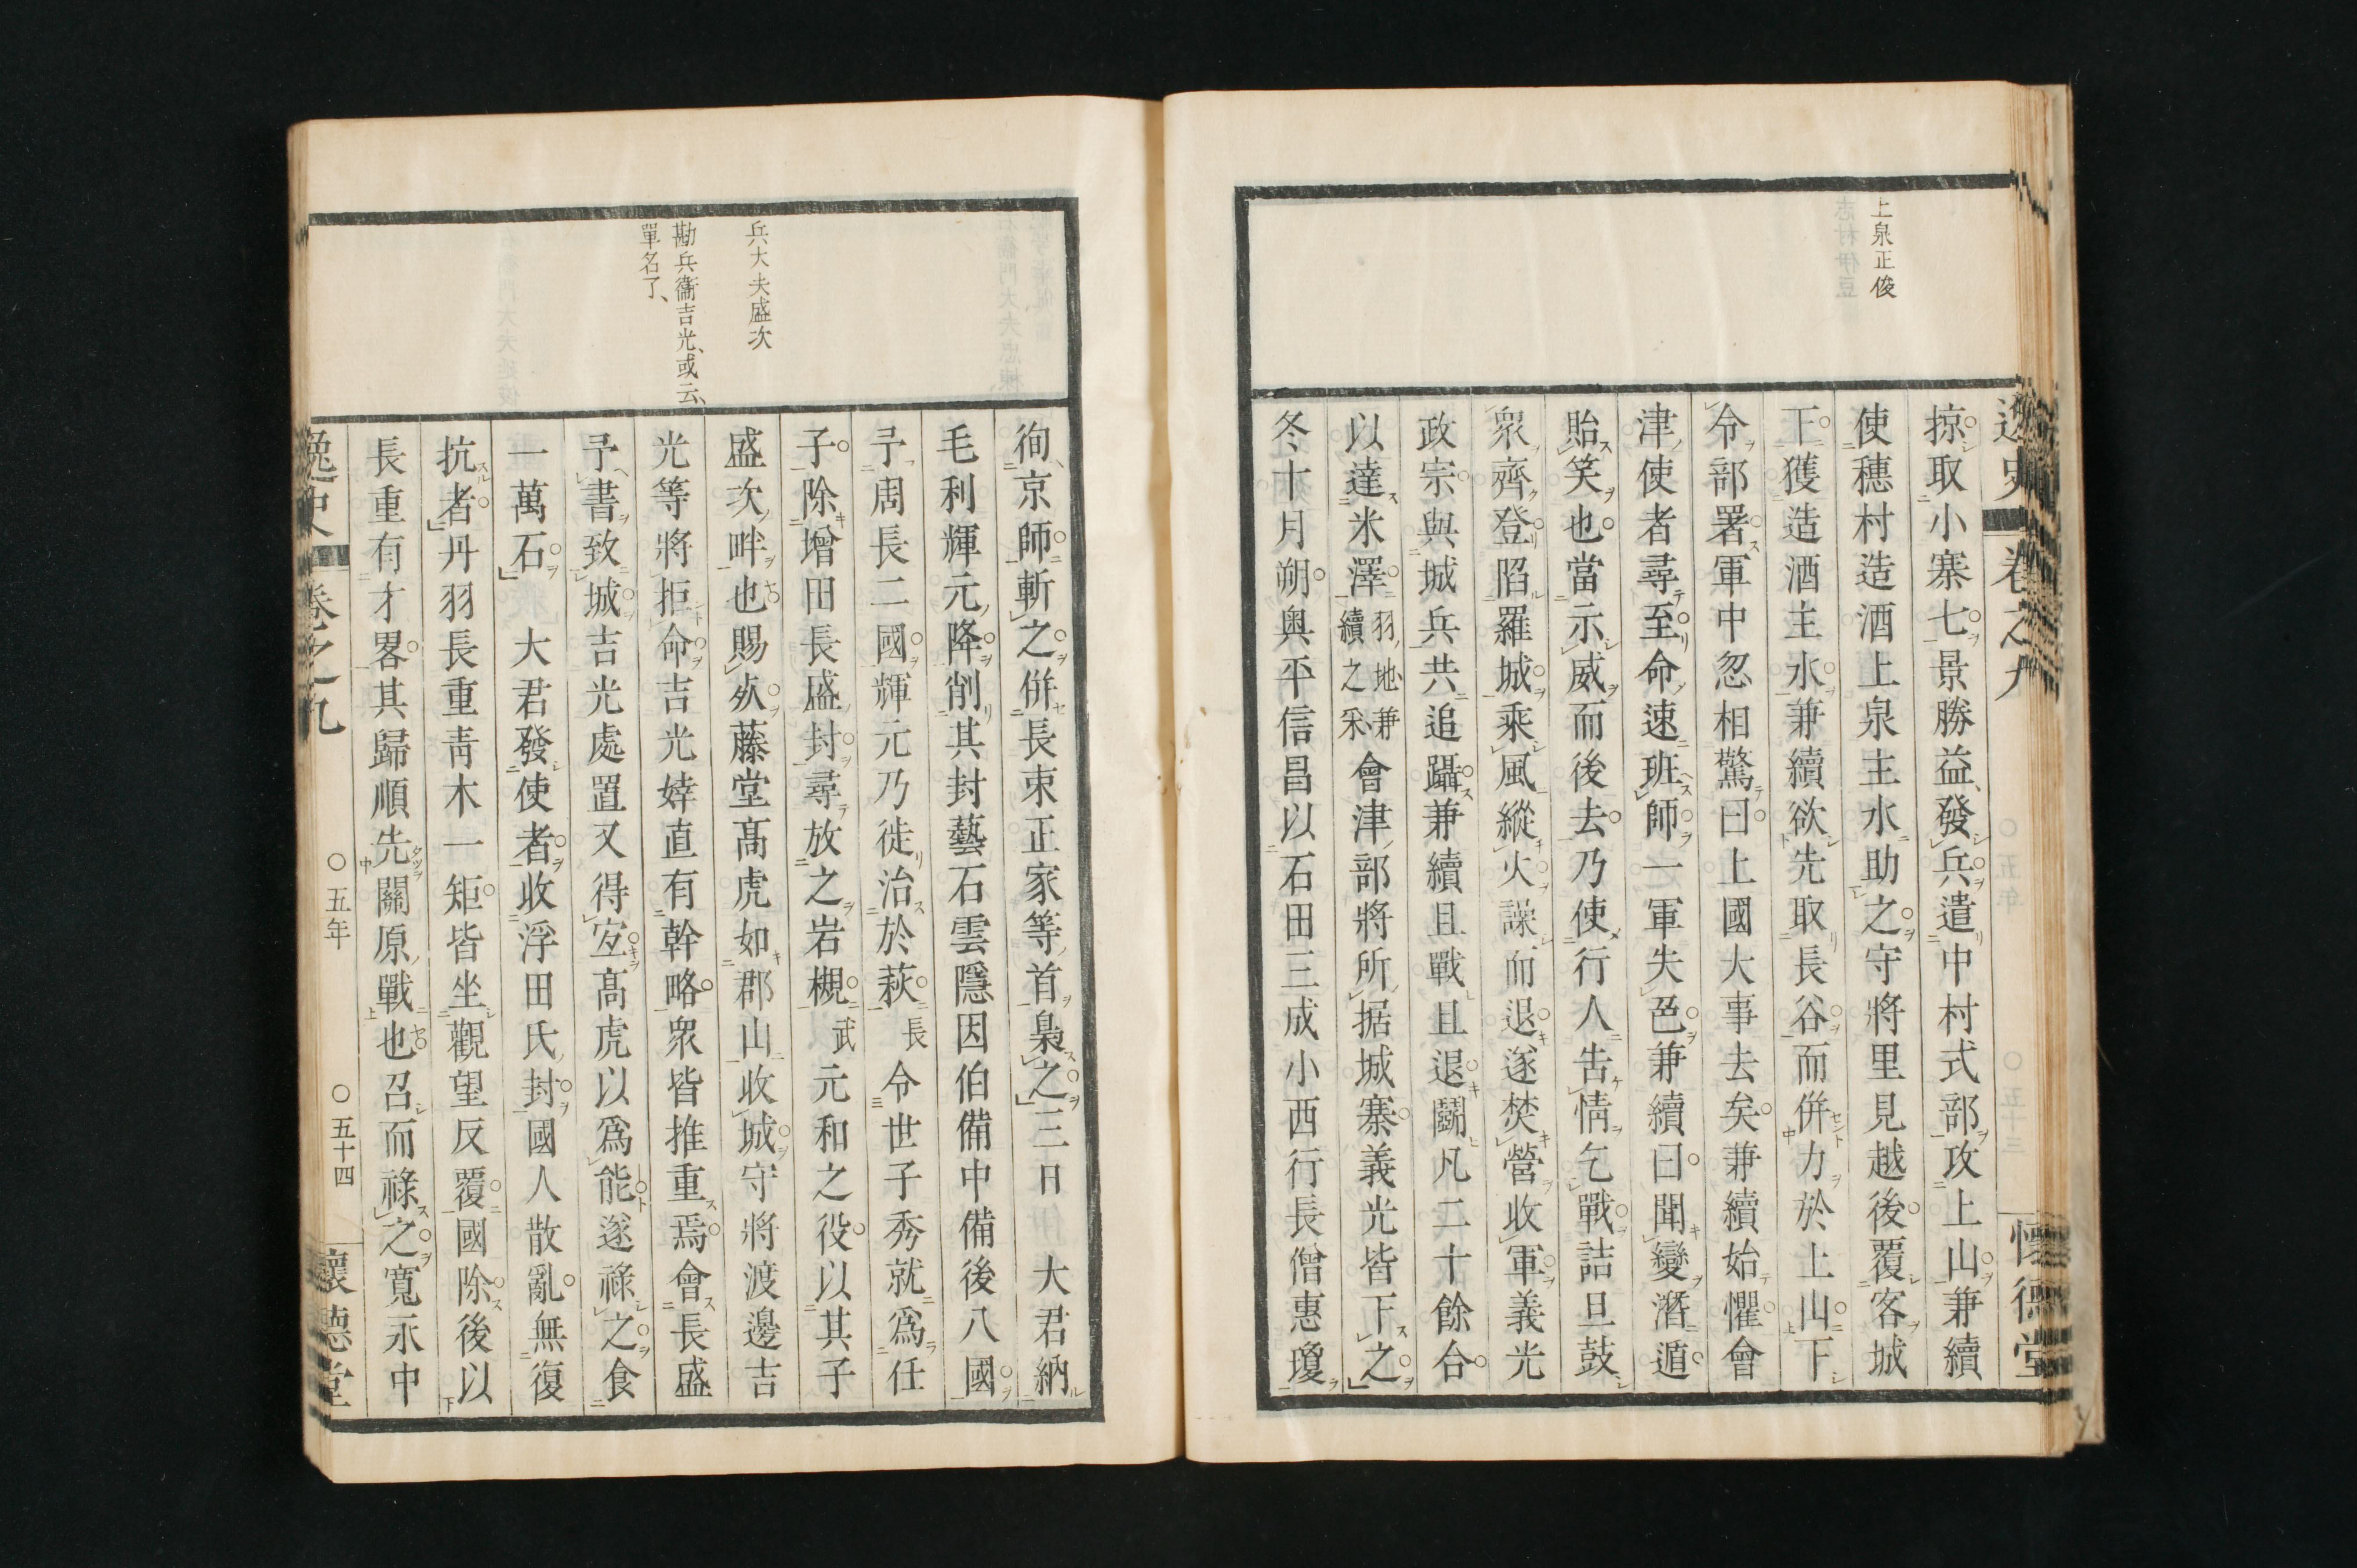 上泉正俊
掠取小寨七景勝益發兵遣中村式部攻上山兼續
使穗村造酒上泉主水助之守將里見越後覆客城
下獲造酒主水兼續欲先取長谷而併力於上山下
令部署軍中忽相驚曰上國大事去矣兼續始懼會
津使者尋至命速班師一軍失色兼續曰聞變潛遁
貽笑也當示威而後去乃使行人告情乞戰詰旦鼓
衆齊登陷羅城乘風縱火譟而退遂焚營收軍義光
政宗與城兵共追躡兼續且戰且退鬬凡二十餘合
以達米澤羽地兼續之釆會津部將所据城寨義光皆下之
冬十月朔奥平信昌以石田三成小西行長僧惠瓊
兵大夫盛次
勘兵衞吉光、或云、
單名了、
徇京師斬之併長束正家等首梟之三日 大君納
毛利輝元降削其封藝石雲隱因伯備中備後八國
予周長二國輝元乃徙治於萩長令世子秀就爲任
子除增田長盛封尋放之岩槻武元和之役以其子
盛次畔也賜死藤堂高虎如郡山收城守將渡邊吉
光等將拒命吉光婞直有幹略衆皆推重焉會長盛
予書致城吉光處置又得宜高虎以爲能遂祿之食
一萬石 大君發使者收浮田氏封國人散亂無復
抗者丹羽長重青木一矩皆坐觀望反覆國除後以
長重有才畧其歸順先關原戰也召而祿之寬永中
逸史 卷之九 〇五年 〇五十四 懷德堂